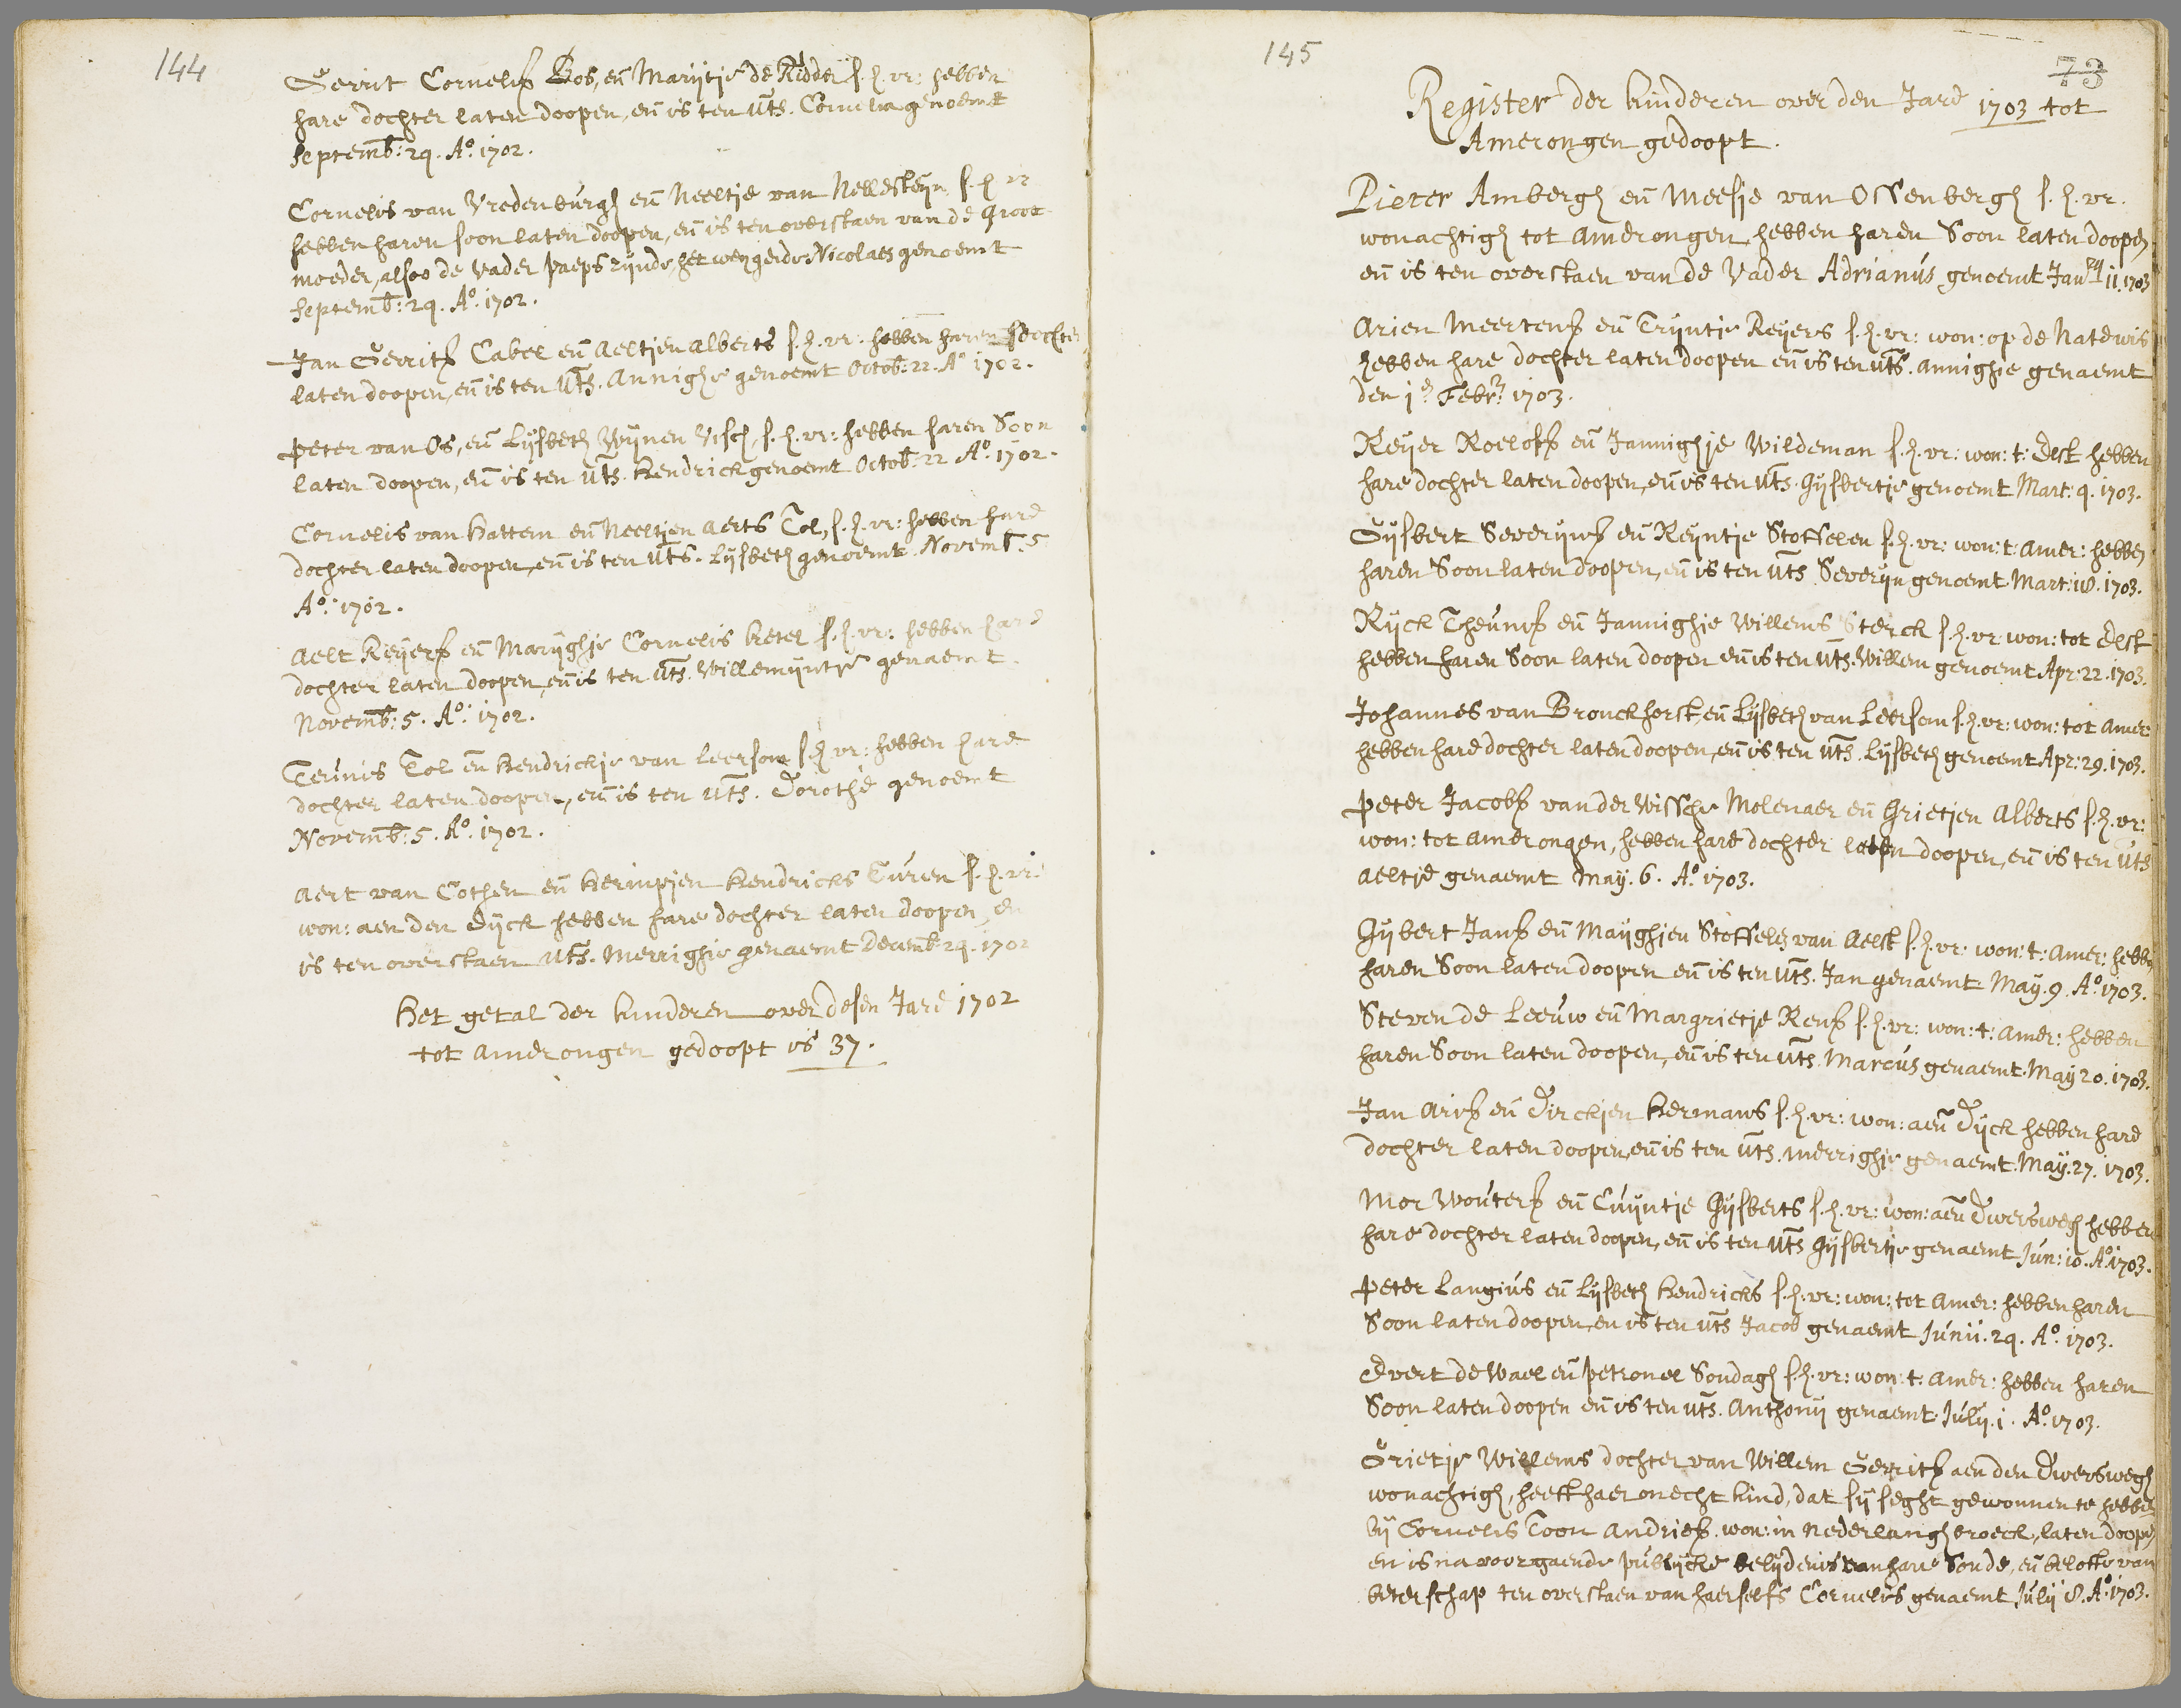 144
Gerrit Cornelisz Bos, en Marijtje de Ridder s. h. vr: hebben
hare dochter laten doopen, en is ten uts. Cornelia genoemt
Septemb: 24. Aº. 1702.
Cornelis van Vredenburgh en Neeltje van Nellesteyn s. h. vr
hebben haren soon laten doopen, en is ten overstaen van de groot
moeder, alsoo de Vader paeps zijnde, het weygerde Nicolaes genoemt
Septemb: 24. Aº. 1702.
Jan Gerritsz Cabel en Aeltjen Alberts s. h. vr: hebben haren dochter
laten doopen, en is ten uts. Annighje genoemt Octob: 22. Aº 1702.
Peter van Os, en Lijsbeth Wijnen Visch, s. h. vr: hebben haren Soon
laten doopen, en is ten uts. Hendrick genoemt Octob: 22 Aº. 1702.
Cornelis van Hattem en Neeltjen Aerts Tol, s. h. vr: hebben hare
dochter laten doopen, en is ten uts. Lijsbeth genoemt. Novemb. 5
Aº. 1702.
Aelt Reijersz en Marijghje Cornelis Ketel s. h. vr: hebben hare
dochter laten doopen, en is ten uts. Willemijntje genaemt.
Novemb: 5. Aº: 1702.
Teunis Tol en Hendrickje van Leersom s. h. vr: hebben hare
dochter laten doopen, en is ten uts. Dorothe genoemt
Novemb: 5. Aº. 1702.
Aert van Cothen en Hermpjen Hendricks Turen s. h. vr:
won: aen den Dijck hebben hare dochter laten doopen, en
is ten overstaen uts. Merrighje genaemt Decemb. 24. 1702
Het getal der kinderen over desen Jare 1702
tot Amerongen gedoopt is 37.
145
73
Register der kinderen over den Jare 1703 tot
Amerongen gedoopt.
Pieter Ambergh en Meesje van Ossenbergh s. h. vr.
wonachtigh tot Amerongen, hebben haren Soon laten doopen
en is ten overstaen van de Vader Adrianus genoemt Janrij 11. 1703
Arien Meertensz en Trijntje Reyers s. h. vr: won: op de Natewis
hebben hare dochter laten doopen en is ten uts. Annighje genaemt
den 1e Febr: 1703.
Reyer Roelofsz en Jannighje Wildeman s. h. vr: won: t: Elst hebben
hare dochter laten doopen, en is ten uts. Gijsbertje genoemt Mart: 4. 1703.
Gijsbert Severijnsz en Reyntje Stoffelen s. h. vr: won: t: Amer: hebben
haren Soon laten doopen, en is ten uts Severijn genoemt Mart: 18. 1703.
Rijck Theunisz en Jannighje Willems Sterck s. h. vr won: tot Elst
hebben haren Soon laten doopen en is ten uts. Willem genoemt Apr: 22. 1703.
Johannes van Bronckhorst, en Lijsbeth van Leersom s. h. vr: won: tot Amer
hebben hare dochter laten doopen, en is ten uts. Lijsbeth genoemt Apr: 29. 1703.
Peter Jacobsz van der Wissche Molenaer en Grietjen Alberts s. h. vr:
won: tot Amerongen, hebben hare dochter laten doopen, en is ten uts
Aeltje genaemt May. 6. Aº. 1703.
Gybert Jansz en Mayghjen Stoffels van Aelst s. h. vr: won: t: Amer: hebben
haren Soon laten doopen en is ten uts. Jan genaemt May. 9. Aº. 1703.
Steven de Leeuw en Margrietje Rensz s. h. vr: won: t: Amer: hebben
haren Soon laten doopen, en is ten uts. Marcus genaemt May 20. 1703.
Jan Arisz en Dirckjen Hermans s. h. vr: won: aen Dijck hebben hare
dochter laten doopen, en is ten uts. Merrighje genaemt. May. 27. 1703.
Mor Woutersz en Cuyntje Gijsberts s. h. vr: won: aen Dwersweg hebben
hare dochter laten doopen, en is ten uts Gijsbertje genaemt Jun: 10. Aº. 1703.
Peter Langius en Lijsbeth Hendricks s. h. vr: won: tot Amer: hebben haren
Soon laten doopen en is ten uts Jacob genaemt Junii. 24. Aº. 1703.
Evert de Wael en Petronel Sondagh s. h. vr: won: t: Amer: hebben haren
Soon laten doopen en is ten uts. Anthonij genaemt. July. 1. Aº. 1703.
Grietje Willems dochter van Willem Gerritsz aen den Dwerswegh
wonachtigh, heeft haer onecht kind, dat sij seght gewonnen te hebben
bij Cornelis Toon Andriesz won: in Nederlangbroeck, laten doopen
en is na voorgaende publijcke belijdenis van hare Sonde, en belofte van
beterschap ten overstaen van haerselfs Cornelis genaemt July 8. Aº. 1703.